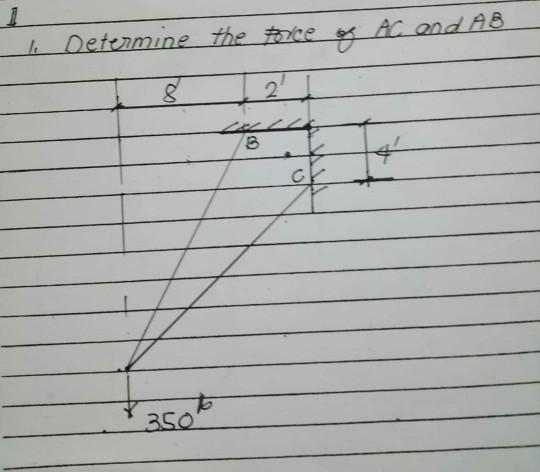 I
1. Determine the force of AC and AB
8' 2'
B
4'
C
350 lb